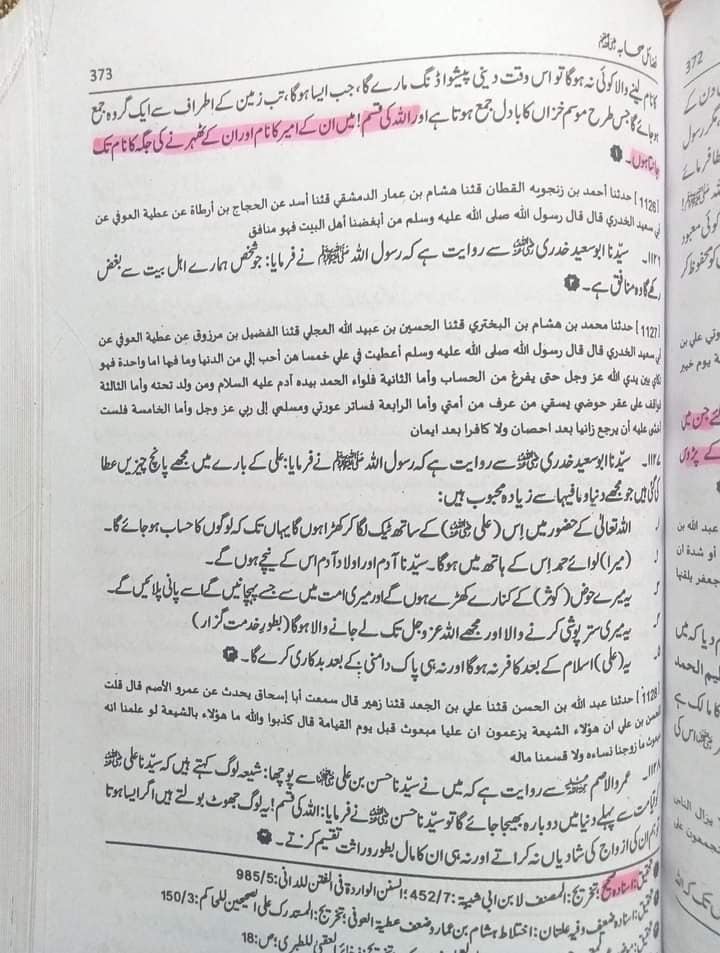 فضائل صحابہ
373
کا نام لینے والا کوئی نہ ہوگا تو اس وقت دینی پیشوا ڈنگ مارے گا، جب ایسا ہوگا، تب زمین کے اطراف سے ایک گروہ جمع
ہو جائے گا جس طرح موسم خزاں کا بادل جمع ہوتا ہے اور اللہ کی قسم! میں ان کے امیر کا نام اور ان کے ٹھہرنے کی جگہ کا نام تک
جانتا ہوں۔ ❶
[1126] حدثنا أحمد بن زنجويه القطان قثنا هشام بن عمار الدمشقي قثنا أسد عن الحجاج بن أرطاة عن عطية العوفي عن
أبي سعيد الخدري قال قال رسول الله صلى الله عليه وسلم من أبغضنا أهل البيت فهو منافق
۱۱۲۶۔ سیّدنا ابوسعید خدری رضی اللہ عنہ سے روایت ہے کہ رسول اللہ ﷺ نے فرمایا: جو شخص ہمارے اہل بیت سے بغض
رکھے گا وہ منافق ہے۔ ❷
[1127] حدثنا محمد بن هشام بن البختري قثنا الحسين بن عبيد الله العجلي قثنا الفضيل بن مرزوق عن عطية العوفي عن
أبي سعيد الخدري قال قال رسول الله صلى الله عليه وسلم أعطيت في علي خمسا هن أحب إلي من الدنيا وما فيها اما واحدة فهو
تكاي بين يدي الله عز وجل حتى يفرغ من الحساب وأما الثانية فلواء الحمد بيده آدم عليه السلام ومن ولد تحته وأما الثالثة
فواقف على عقر حوضي يسقي من عرف من أمتي وأما الرابعة فساتر عورتي ومسلمي إلى ربي عز وجل وأما الخامسة فلست
أخشى عليه أن يرجع زانيا بعد احصان ولا كافرا بعد ايمان
۱۱۲۷۔ سیّدنا ابوسعید خدری رضی اللہ عنہ سے روایت ہے کہ رسول اللہ ﷺ نے فرمایا: علی کے بارے میں مجھے پانچ چیزیں عطا
کی گئی ہیں جو مجھے دنیا و ما فیہا سے زیادہ محبوب ہیں:
اللہ تعالیٰ کے حضور میں اِس (علی رضی اللہ عنہ) کے ساتھ ٹیک لگا کر کھڑا ہوں گا یہاں تک کہ لوگوں کا حساب ہو جائے گا۔
(میرا) لوائے حمد اِس کے ہاتھ میں ہوگا۔ سیّدنا آدم اور اولاد آدم اس کے نیچے ہوں گے۔
یہ میرے حوض (کوثر) کے کنارے کھڑے ہوں گے اور میری امت میں سے جسے پہچانیں گے اسے پانی پلائیں گے۔
یہ میری ستر پوشی کرنے والا اور مجھے اللہ عزوجل تک لے جانے والا ہوگا (بطورِ خدمت گزار)
یہ (علی) اسلام کے بعد کافر نہ ہوگا اور نہ ہی پاک دامنی کے بعد بدکاری کرے گا۔ ❸
[1128] حدثنا عبد الله بن الحسن قثنا علي بن الجعد قثنا زهير قال سمعت أبا إسحاق يحدث عن عمرو الأصم قال قلت
للحسن بن علي ان هؤلاء الشيعة يزعمون ان عليا مبعوث قبل يوم القيامة قال كذبوا والله ما هؤلاء بالشيعة لو علمنا انه
مبعوث ما زوجنا نساءه ولا قسمنا ماله
۱۱۲۸۔ عمرو الاصم سے روایت ہے کہ میں نے سیّدنا حسن بن علی رضی اللہ عنہ سے پوچھا: شیعہ لوگ کہتے ہیں کہ سیّدنا علی رضی اللہ عنہ
قیامت سے پہلے دنیا میں دوبارہ بھیجا جائے گا تو سیّدنا حسن رضی اللہ عنہ نے فرمایا: اللہ کی قسم! یہ لوگ جھوٹ بولتے ہیں اگر ایسا ہوتا
تو ہم ان کی ازواج کی شادیاں نہ کراتے اور نہ ہی ان کا مال بطور وراثت تقسیم کرتے۔ ❹
❶ تحقیق: اسنادہ صحیح؛ تخریج: المصنف لابن ابی شیبۃ: 452/7؛ السنن الواردۃ فی الفتن للدانی: 985/5
❷ تحقیق: اسنادہ ضعیف وفیہ علتان: اختلاط ہشام بن عمار وضعف عطیۃ العوفی؛ تخریج: المستدرک علی الصحیحین للحاکم: 150/3
العقبیٰ للطبری؛ ص: 18
372